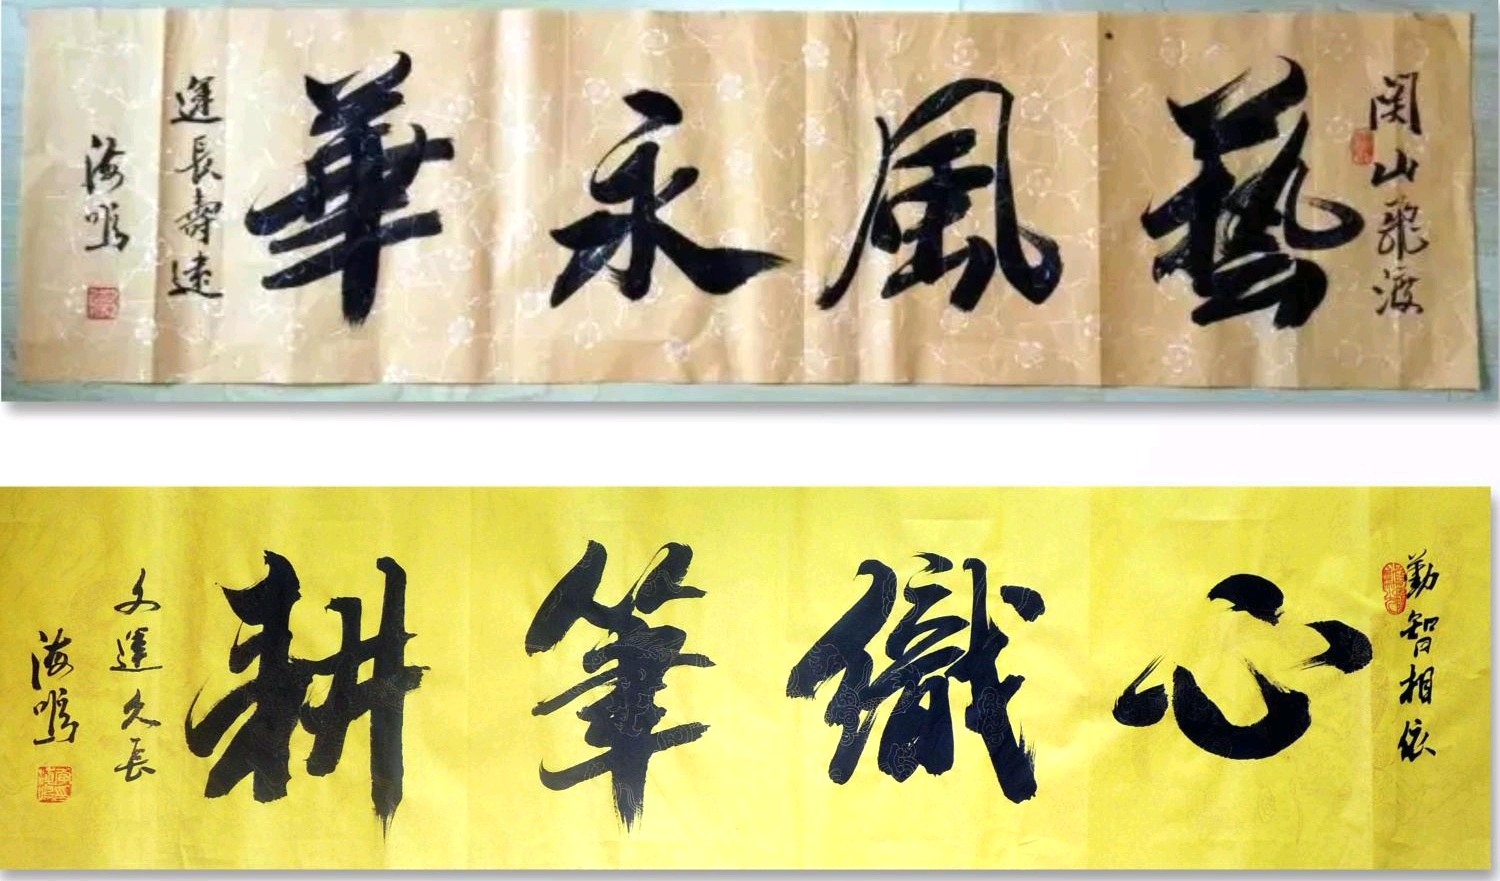 関山飛渡
藝風永華
運長壽遠
海鳴
勤智相依
心織筆耕
文運久長
海鳴